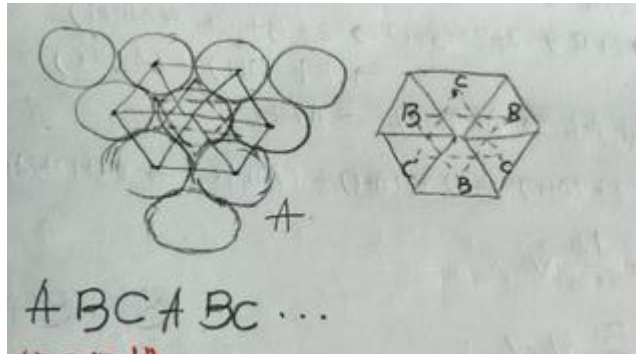 C
B B
C C
B
A
A B C A B C ...